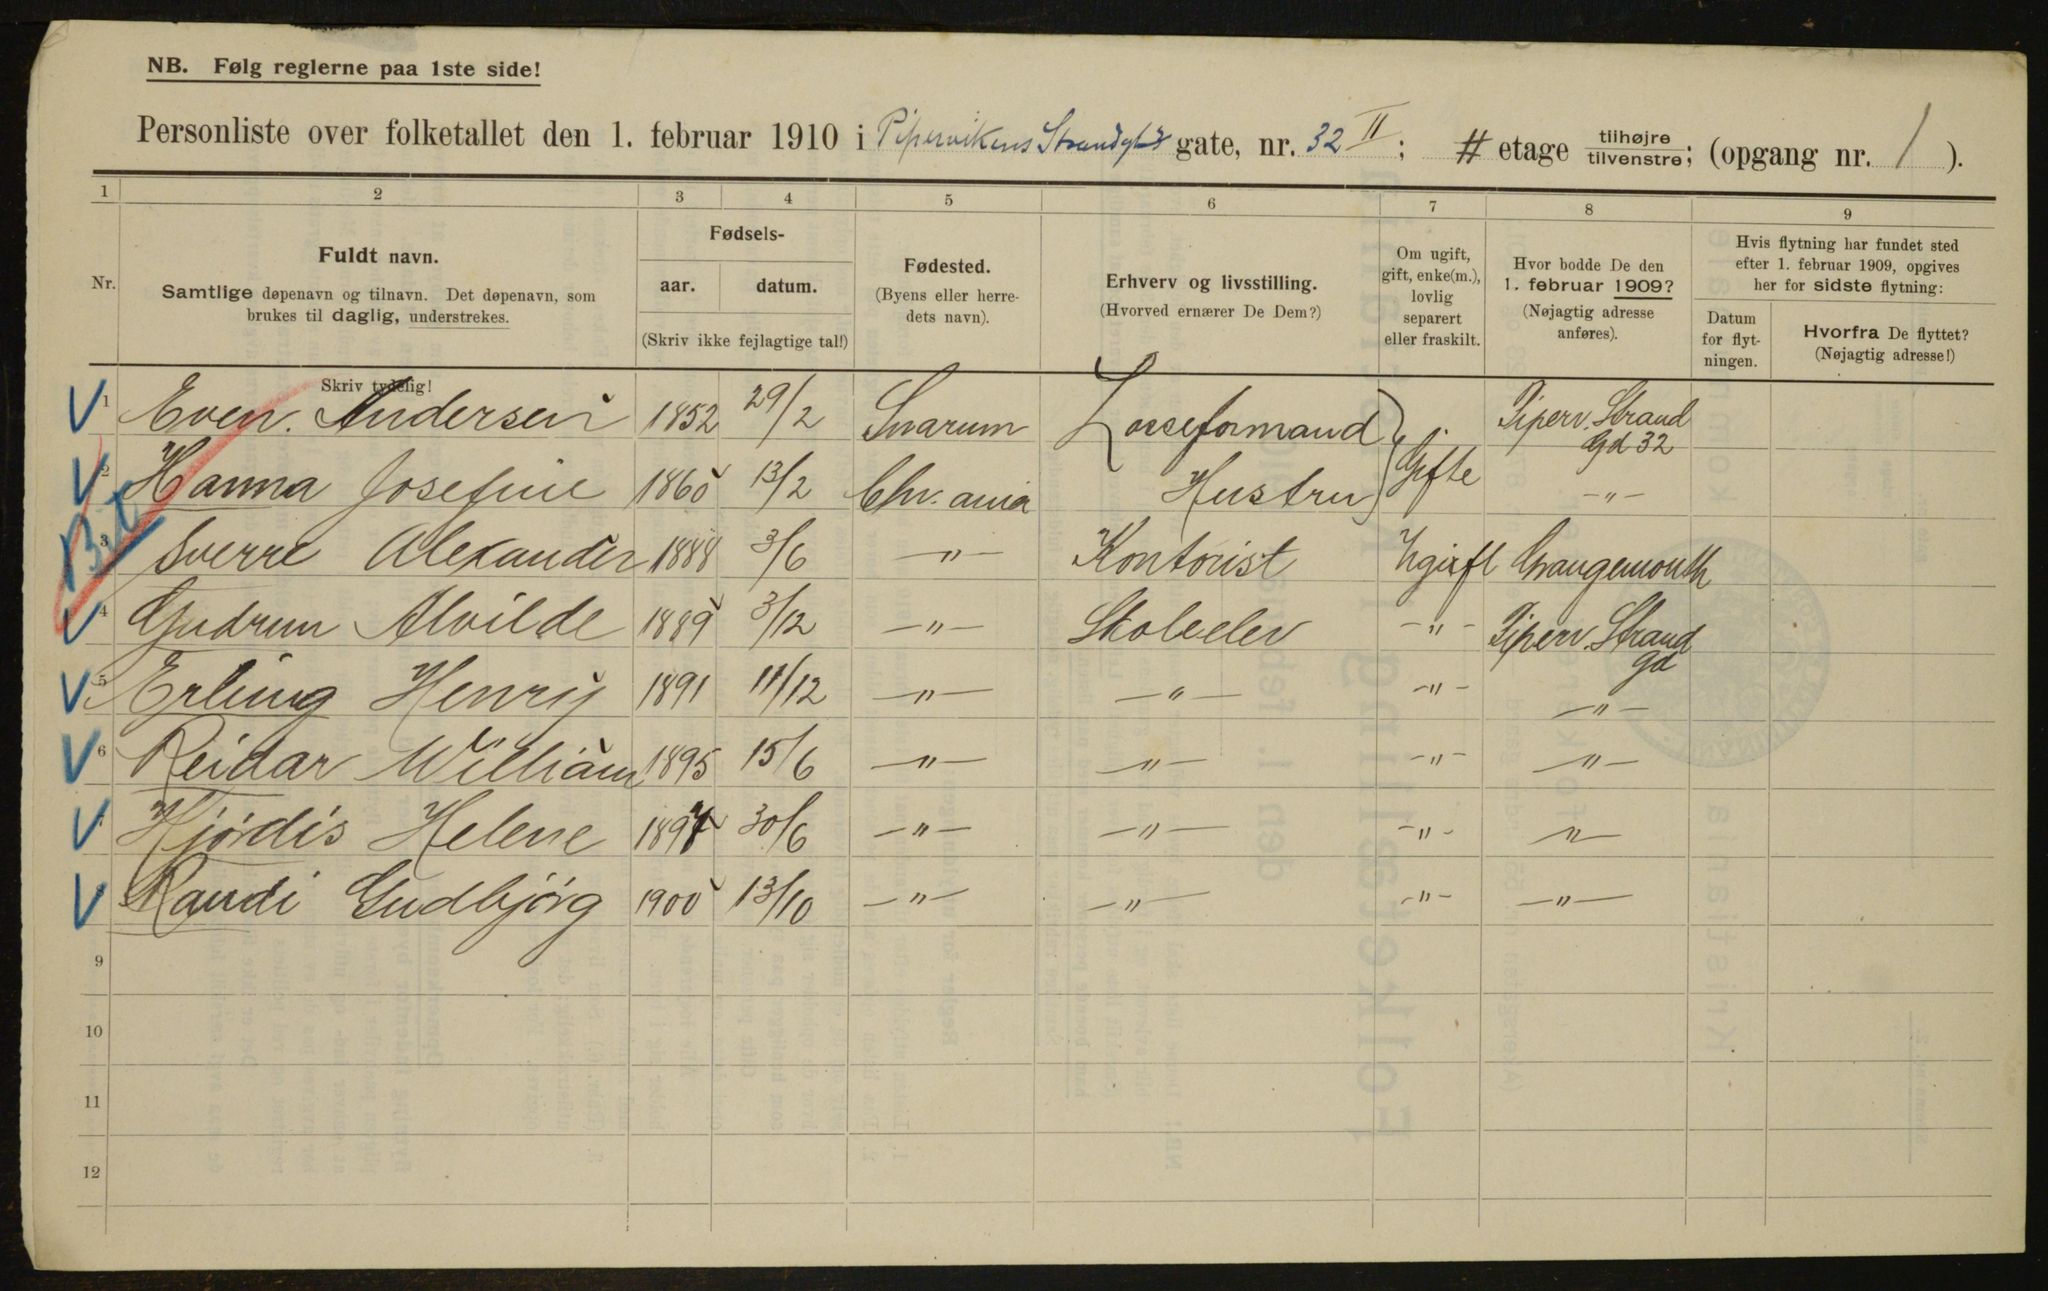 NB. Følg reglerne paa 1ste side!
Personliste over folketallet den 1. februar 1910 i Pipervikens Strandgt. gate, nr. 32 II; # etage tilhøjre / tilvenstre; (opgang nr. 1).
1 2 3 4 5 6 7 8 9
Nr.
Fuldt navn.
Samtlige døpenavn og tilnavn. Det døpenavn, som
brukes til daglig, understrekes.
Skriv tydelig!
Fødsels-
aar. datum.
(Skriv ikke fejlagtige tal!)
Fødested.
(Byens eller herre-
dets navn).
Erhverv og livsstilling.
(Hvorved ernærer De Dem?)
Om ugift,
gift, enke(m.),
lovlig
separert
eller fraskilt.
Hvor bodde De den
1. februar 1909?
(Nøjagtig adresse
anføres).
Hvis flytning har fundet sted
efter 1. februar 1909, opgives
her for sidste flytning:
Datum
for flyt-
ningen.
Hvorfra De flyttet?
(Nøjagtig adresse!)
1 Even. Andersen 1852 29/2 Snarum Losseformand Gifte Piperv. Strand Gd 32
2 Hanna Josefine 1865 13/2 Chr.ania Hustru -"-
3 Sverre Alexander 1888 3/6 -"- Kontorist Ugift Grangemouth
4 Gudrun Alvilde 1889 3/12 -"- Skoleelev -"- Piperv. Strand gd
5 Erling Henry 1891 11/12 -"- -"- -"- -"-
6 Reidar William 1895 15/6 -"- -"- -"- -"-
Hjørdis Helene 1897 30/6 -"- -"- -"- -"-
Randi Gudbjørg 1900 13/10 -"- -"- -"- -"-
9
10
11
12